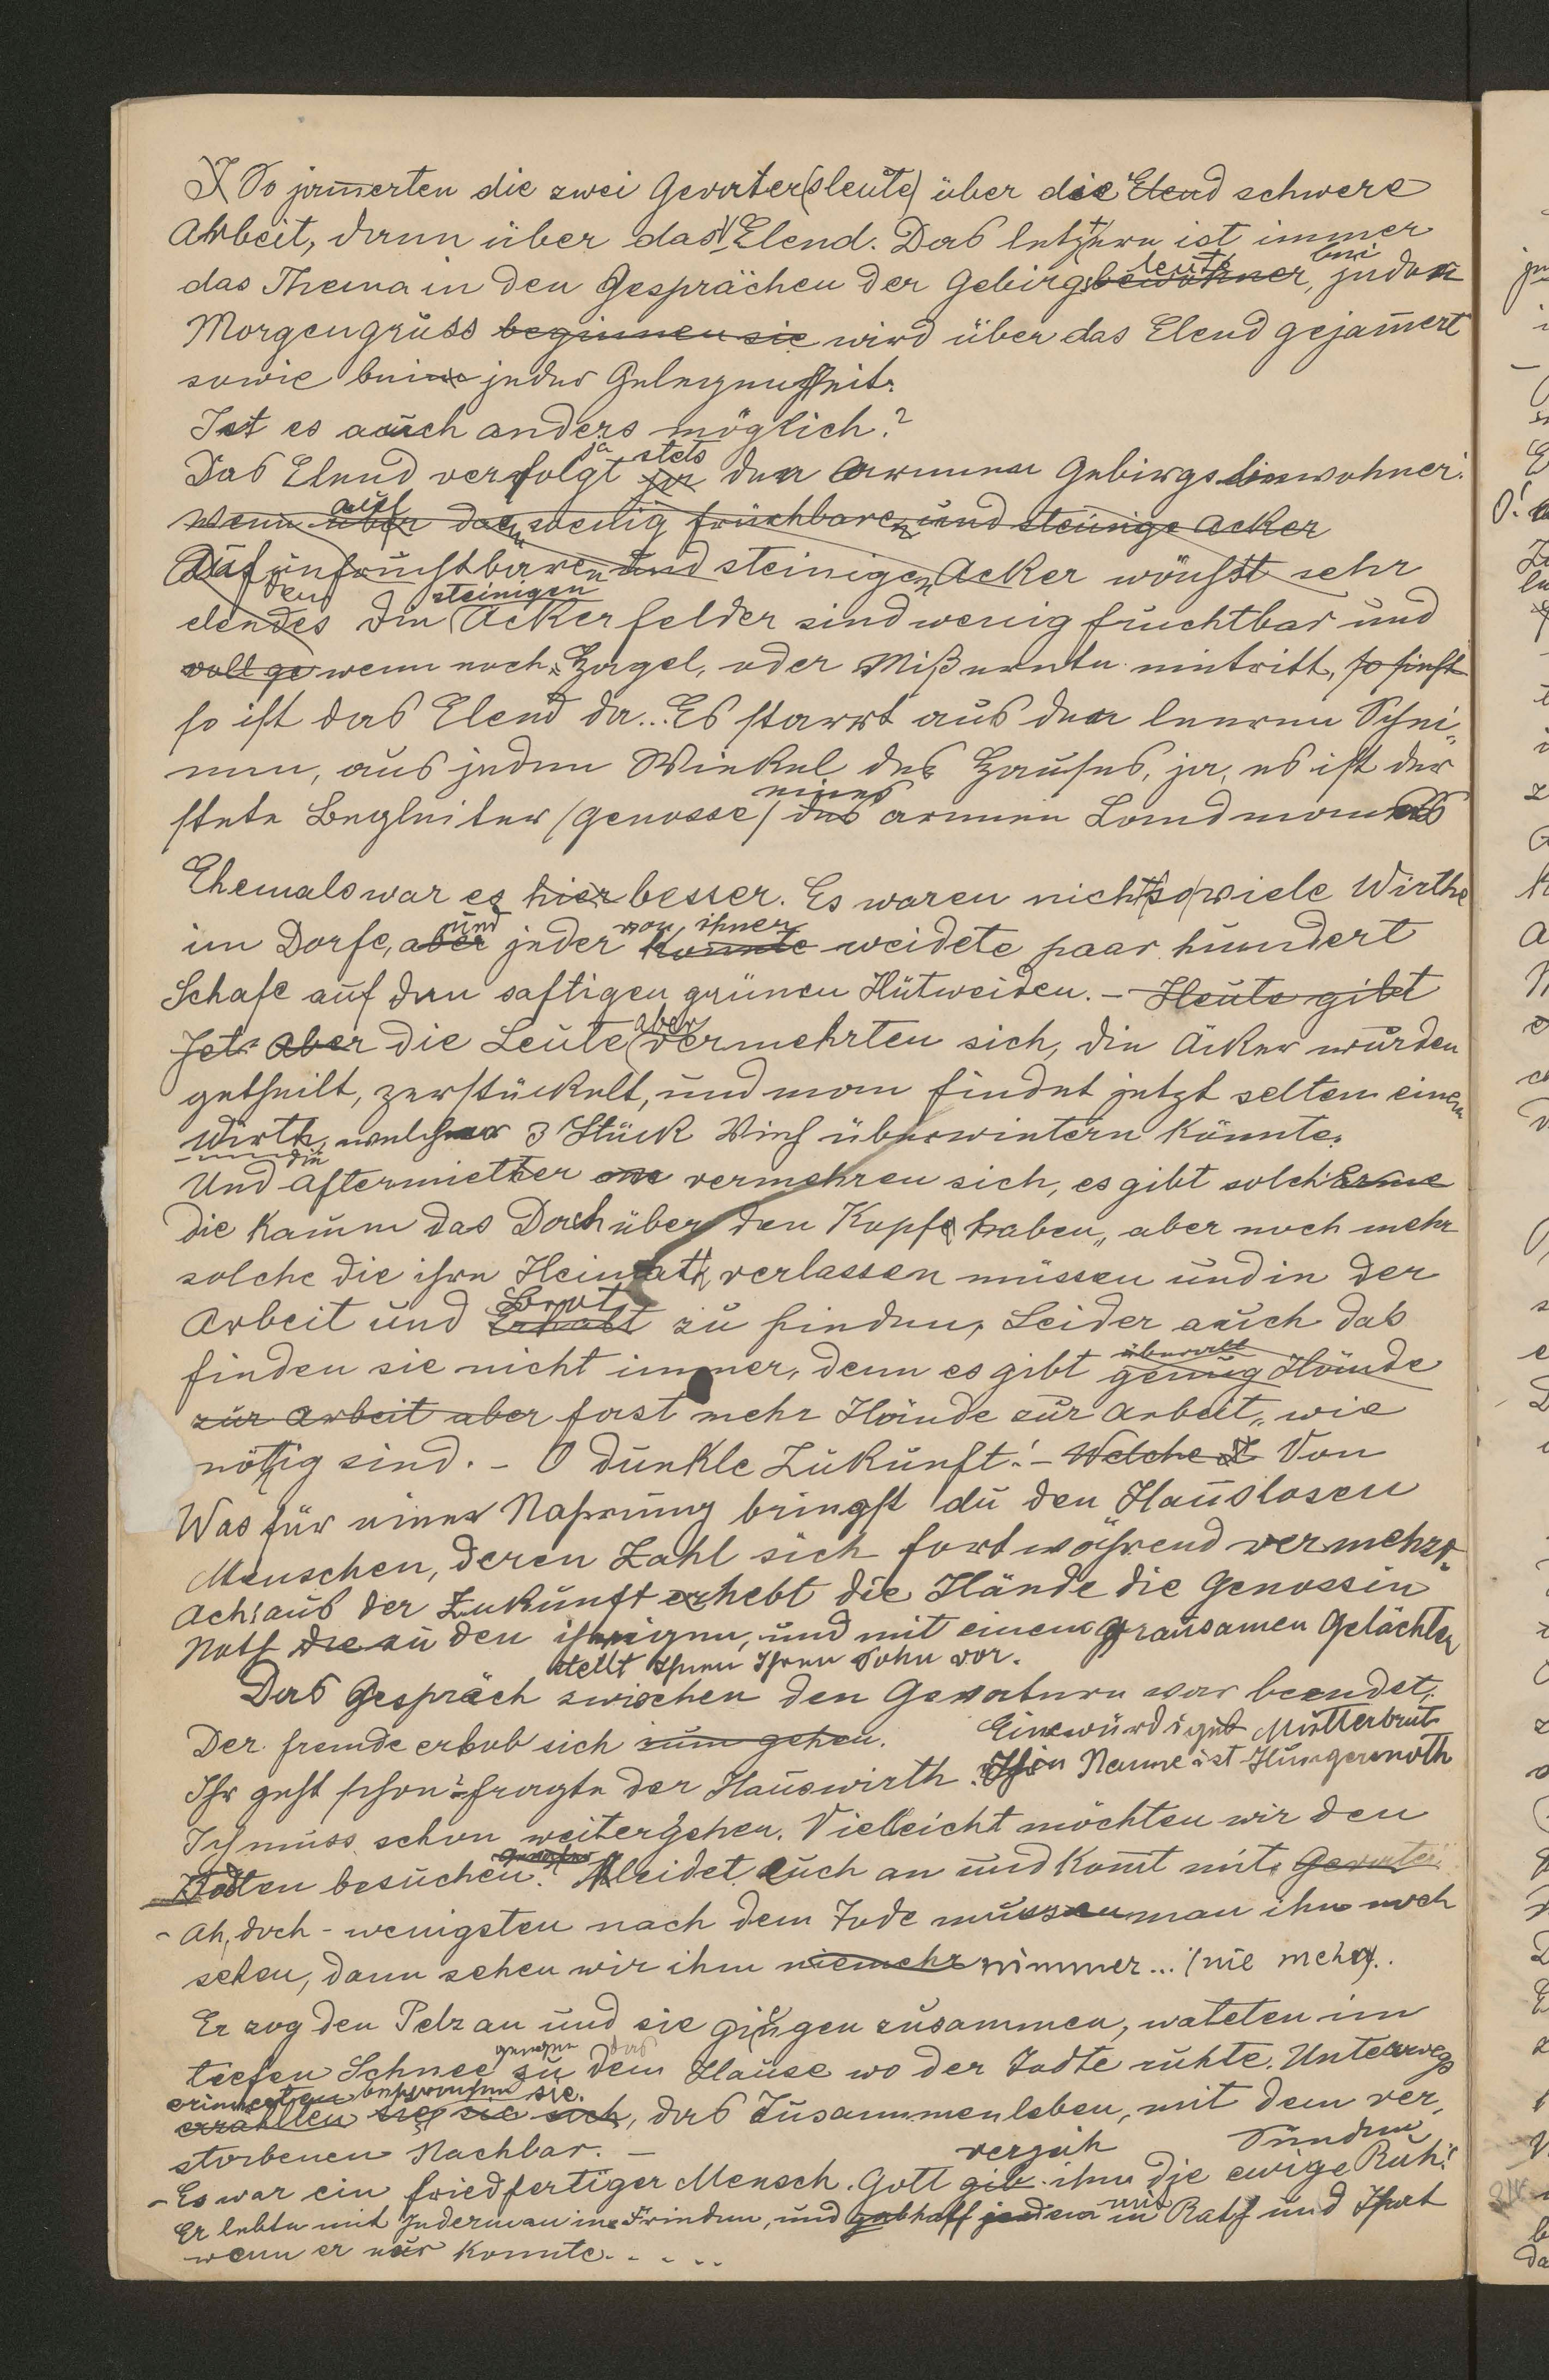 So jam̅erten die zwei Gevater(sleute) über die Elend schwere
Arbeit, dann über das Elend. Das letztere ist immer
das Thema in den Gesprächen der Gebirgsbewohner leute, bei jeden
Morgengruss beginnen sie wird über das Elend gejam̅ert
sowie bei jeder Gelegenheit.
Ist es auch anders möglich?
Das Elend verfolgt ja stets den armen Gebirgseinwohner.
Wenn über auf den wenig fruchbaren und steinige Acker
Auf unfruchtbaren und steinigen Acker wächst sehr
elendes den die steinigen Ackerfelder sind wenig fruchtbar und
voll ge wenn noch Hagel, oder Mißernte eintritt, so sieht
so ist das Elend da... Es starrt aus den leeren Scheu-
nen, aus jedem Winkel des Hauses, ja, es ist der
stete Begleiter (genosse) des eines armen Landmannes
Ehemals war es hier besser. Es waren nicht so viele Wirthe
im Dorfe, aber und jeder von ihnen konnte weidete paar hundert
Schafe auf den saftigen grünen Hütweiden. - Heute gibt
Jetz aber die Leute aber vermehrten sich, die Äcker wurden
getheilt, zerstückelt, und man findet jetzt selten einen
Wirth, welcher 3 Stück Vieh überwintern könnte.
Und die Aftermiether vermehren sich, es gibt solche
die kaum das Dach über den Kopfe haben, aber noch mehr
solche die ihre Heimath verlassen müssen und in der
Arbeit und Erhalt Brot zu finden, Leider auch das
finden sie nicht immer, denn es gibt überall genug Hände
zur Arbeit aber fast mehr Hände zur Arbeit, wie
nöthig sind. - O dunkle Zukunft! - Welche Von
Was für einer Nahrung bringst du den Hauslosen
Menschen, deren Zahl sich fortwährend vermehrt.
Ach! aus der Zukunft erhebt die Hände die Genossin
Noth die zu den ihrigen, und mit einem grausamen Gelächter
stellt Ihnen Ihren Sohn vor.
Das Gespräch zwischen den Gevatern war beendet,
Der fremde erhob sich zum gehen. Eine würdige Mutterbrut
Ihr geht schon? fragte der Hauswirth. Name ist Hungersnoth
Ich muss schon weitergehen. Vielleicht möchten wir den
Todten besuchen? Gevater Kleidet euch an und kom̅t mit, Gevater.
- Ah, doch - wenigsten nach dem Tode müssen man ihn noch
sehen, dann sehen wir ihm niemehr nimmer... (nie mehr)..
Er zog den Pelz an und sie gingen zusammen, wateten im
tiefen Schnee gegen das zu dem Hause wo der Todte ruhte. Unterwegs
erinnerten besprachen sie.
erzählten sie sich, das Zusammenleben, mit dem ver-
storbenen Nachbar. -
- Es war ein friedfertiger Mensch. Gott gib verzeih ihm die Sünden ewige Ruh!
Er lebte mit Jederman in Frieden, und gab half jedem in mit Rath und That
wenn er nur konnte. . . . .